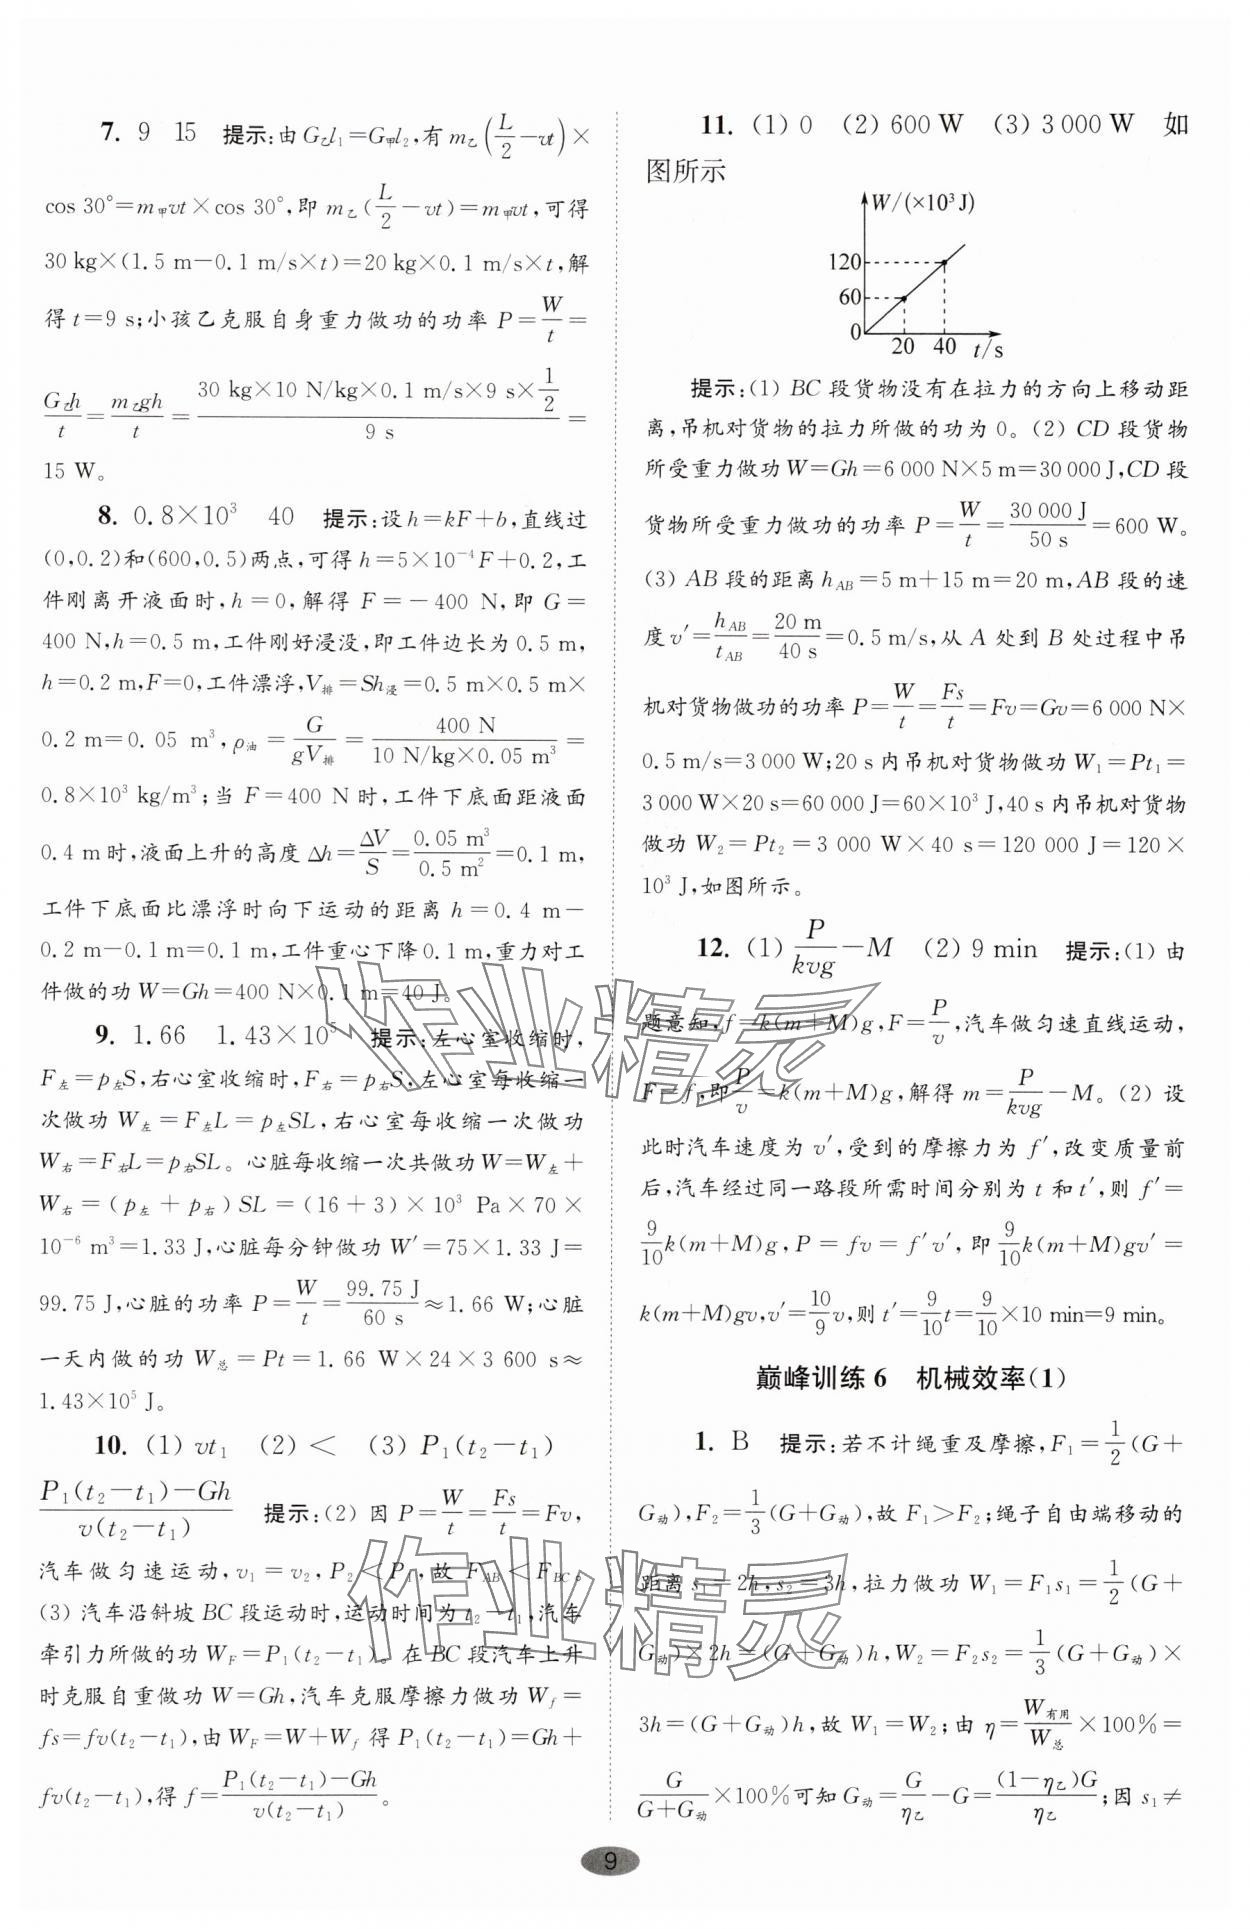 7. 9 15 提示:由G乙l₁=G甲l₂,有m乙(L/2-vt)×
cos 30°=m甲vt×cos 30°,即m乙(L/2-vt)=m甲vt,可得
30 kg×(1.5 m-0.1 m/s×t)=20 kg×0.1 m/s×t,解
得t=9 s;小孩乙克服自身重力做功的功率P=W/t=
G乙h/t=m乙gh/t=(30 kg×10 N/kg×0.1 m/s×9 s×1/2)/(9 s)=
15 W。
8. 0.8×10³ 40 提示:设h=kF+b,直线过
(0,0.2)和(600,0.5)两点,可得h=5×10⁻⁴F+0.2,工
件刚离开液面时,h=0,解得F=-400 N,即G=
400 N,h=0.5 m,工件刚好浸没,即工件边长为0.5 m,
h=0.2 m,F=0,工件漂浮,V排=Sh浸=0.5 m×0.5 m×
0.2 m=0.05 m³,ρ油=G/(gV排)=400 N/(10 N/kg×0.05 m³)=
0.8×10³ kg/m³;当F=400 N时,工件下底面距液面
0.4 m时,液面上升的高度Δh=ΔV/S=0.05 m³/0.5 m²=0.1 m,
工件下底面比漂浮时向下运动的距离h=0.4 m-
0.2 m-0.1 m=0.1 m,工件重心下降0.1 m,重力对工
件做的功W=Gh=400 N×0.1 m=40 J。
9. 1.66 1.43×10⁵ 提示:左心室收缩时,
F左=p左S,右心室收缩时,F右=p右S,左心室每收缩一
次做功W左=F左L=p左SL,右心室每收缩一次做功
W右=F右L=p右SL。心脏每收缩一次共做功W=W左+
W右=(p左+p右)SL=(16+3)×10³ Pa×70×
10⁻⁶ m³=1.33 J,心脏每分钟做功W′=75×1.33 J=
99.75 J,心脏的功率P=W/t=99.75 J/60 s≈1.66 W;心脏
一天内做的功W总=Pt=1.66 W×24×3 600 s≈
1.43×10⁵ J。
10. (1) vt₁ (2) < (3) P₁(t₂-t₁)
(P₁(t₂-t₁)-Gh)/(v(t₂-t₁)) 提示:(2) 因P=W/t=Fs/t=Fv,
汽车做匀速运动,v₁=v₂,P₂<P₁,故F_AB<F_BC。
(3) 汽车沿斜坡BC段运动时,运动时间为t₂-t₁,汽车
牵引力所做的功W_F=P₁(t₂-t₁)。在BC段汽车上升
时克服自重做功W=Gh,汽车克服摩擦力做功W_f=
fs=fv(t₂-t₁),由W_F=W+W_f得P₁(t₂-t₁)=Gh+
fv(t₂-t₁),得f=(P₁(t₂-t₁)-Gh)/(v(t₂-t₁))。
11. (1) 0 (2) 600 W (3) 3 000 W 如
图所示
W/(×10³ J)
120
60
0
20 40 t/s
提示:(1) BC段货物没有在拉力的方向上移动距
离,吊机对货物的拉力所做的功为0。(2) CD段货物
所受重力做功W=Gh=6 000 N×5 m=30 000 J,CD段
货物所受重力做功的功率P=W/t=30 000 J/50 s=600 W。
(3) AB段的距离h_AB=5 m+15 m=20 m,AB段的速
度v′=h_AB/t_AB=20 m/40 s=0.5 m/s,从A处到B处过程中吊
机对货物做功的功率P=W/t=Fs/t=Fv=Gv=6 000 N×
0.5 m/s=3 000 W;20 s内吊机对货物做功W₁=Pt₁=
3 000 W×20 s=60 000 J=60×10³ J,40 s内吊机对货物
做功W₂=Pt₂=3 000 W×40 s=120 000 J=120×
10³ J,如图所示。
12. (1) P/(kvg)-M (2) 9 min 提示:(1) 由
题意知,f=k(m+M)g,F=P/v,汽车做匀速直线运动,
F=f,即P/v=k(m+M)g,解得m=P/(kvg)-M。(2) 设
此时汽车速度为v′,受到的摩擦力为f′,改变质量前
后,汽车经过同一路段所需时间分别为t和t′,则f′=
9/10 k(m+M)g,P=fv=f′v′,即9/10 k(m+M)gv′=
k(m+M)gv,v′=10/9 v,则t′=9/10 t=9/10×10 min=9 min。
巅峰训练6 机械效率(1)
1. B 提示:若不计绳重及摩擦,F₁=1/2(G+
G动),F₂=1/3(G+G动),故F₁>F₂;绳子自由端移动的
距离s₁=2h,s₂=3h,拉力做功W₁=F₁s₁=1/2(G+
G动)×2h=(G+G动)h,W₂=F₂s₂=1/3(G+G动)×
3h=(G+G动)h,故W₁=W₂;由η=W有用/W总×100%=
G/(G+G动)×100%可知G动=G/η乙-G=(1-η乙)G/η乙;因s₁≠
9
作业精灵
作业精灵